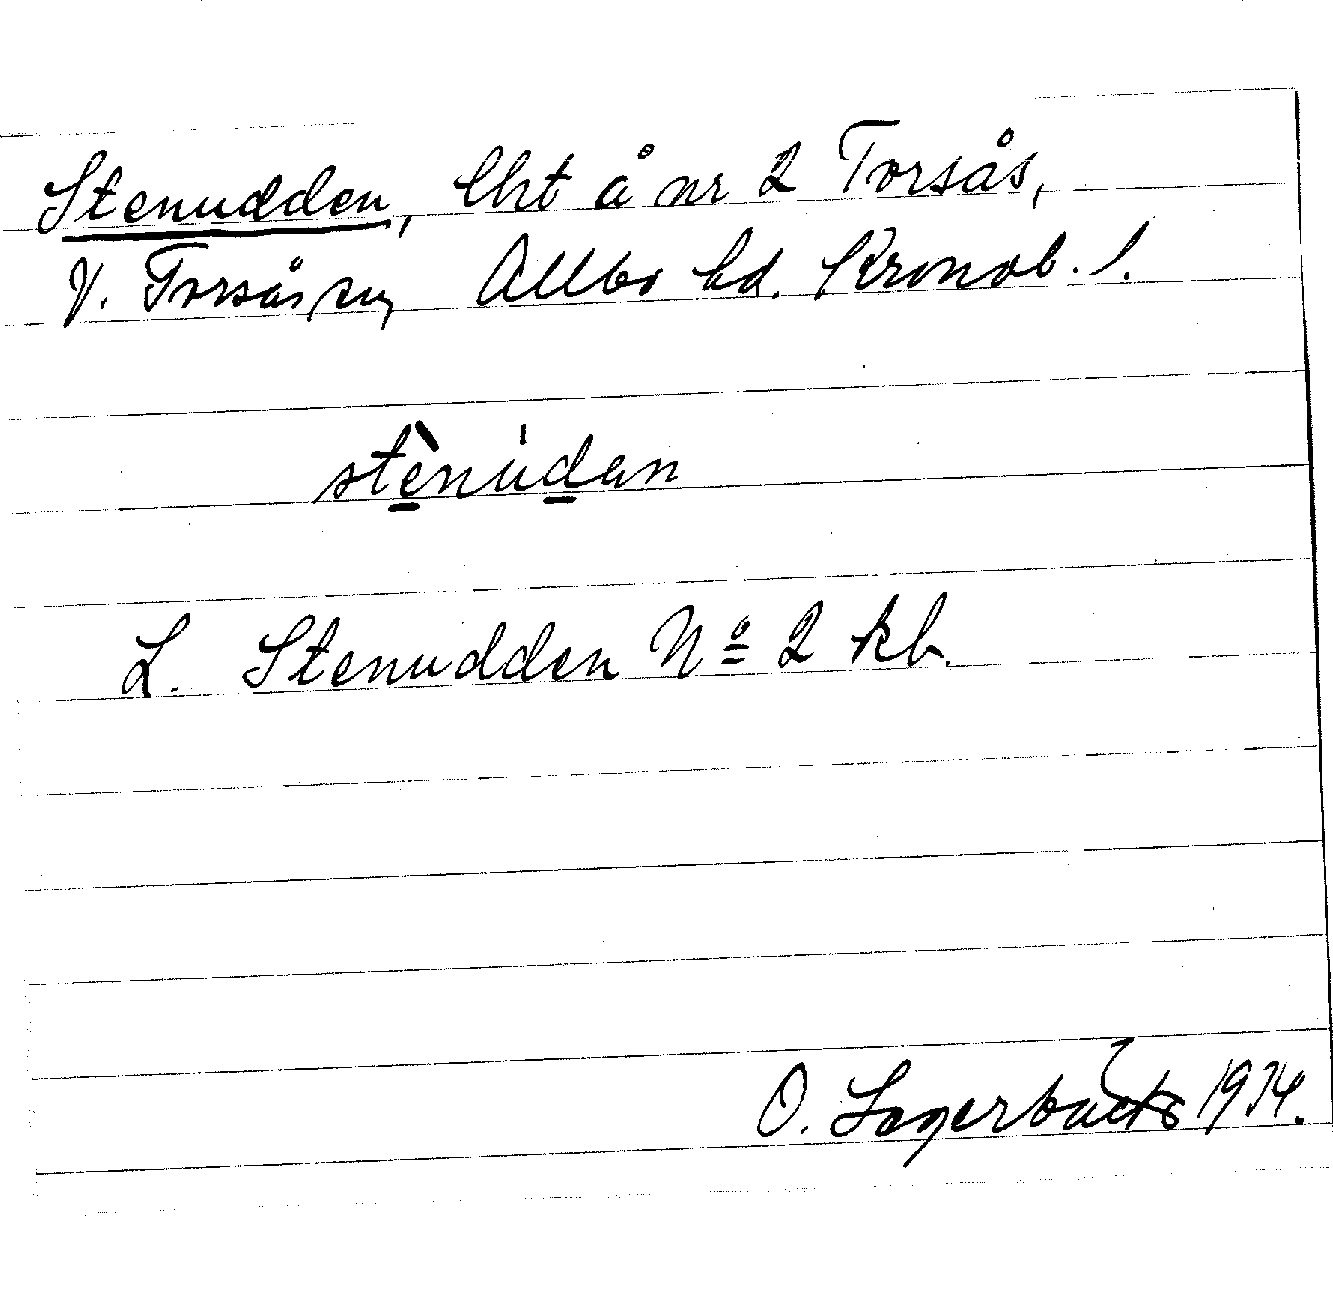 Stenudden, lht å nr 2 Torsås,
V. Torsås sn, Allbo hd. Kronob. l.
stènúdan
L. Stenudden No 2 kb.
O. Lagerbäck 1934.